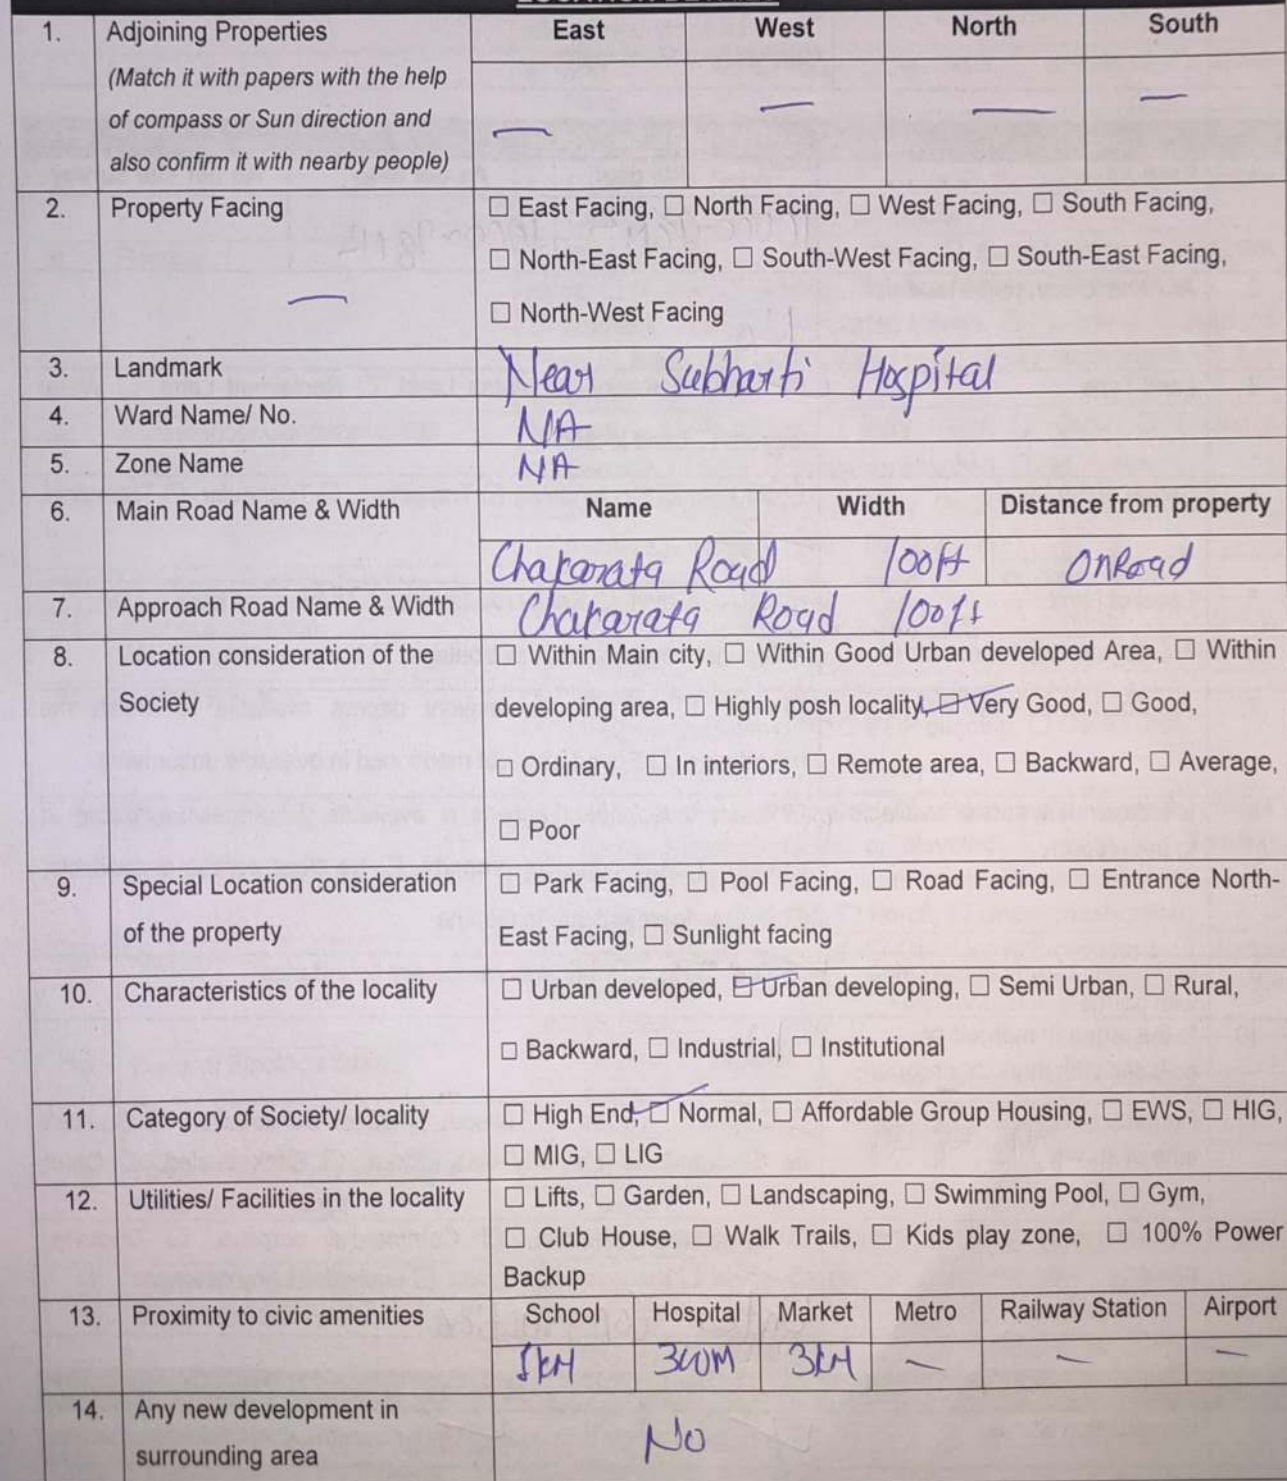 1. Adjoining Properties East West North South
(Match it with papers with the help
of compass or Sun direction and
also confirm it with nearby people)
— — — —
2. Property Facing ☐ East Facing, ☐ North Facing, ☐ West Facing, ☐ South Facing,
☐ North-East Facing, ☐ South-West Facing, ☐ South-East Facing,
— ☐ North-West Facing
3. Landmark Near Subharti Hospital
4. Ward Name/ No. NA
5. Zone Name NA
6. Main Road Name & Width Name Width Distance from property
Chakarata Road 100ft OnRoad
7. Approach Road Name & Width Chakarata Road 100ft
8. Location consideration of the ☐ Within Main city, ☐ Within Good Urban developed Area, ☐ Within
Society developing area, ☐ Highly posh locality, ☑ Very Good, ☐ Good,
☐ Ordinary, ☐ In interiors, ☐ Remote area, ☐ Backward, ☐ Average,
☐ Poor
9. Special Location consideration ☐ Park Facing, ☐ Pool Facing, ☐ Road Facing, ☐ Entrance North-
of the property East Facing, ☐ Sunlight facing
10. Characteristics of the locality ☐ Urban developed, ☑ Urban developing, ☐ Semi Urban, ☐ Rural,
☐ Backward, ☐ Industrial, ☐ Institutional
11. Category of Society/ locality ☐ High End, ☑ Normal, ☐ Affordable Group Housing, ☐ EWS, ☐ HIG,
☐ MIG, ☐ LIG
12. Utilities/ Facilities in the locality ☐ Lifts, ☐ Garden, ☐ Landscaping, ☐ Swimming Pool, ☐ Gym,
☐ Club House, ☐ Walk Trails, ☐ Kids play zone, ☐ 100% Power
Backup
13. Proximity to civic amenities School Hospital Market Metro Railway Station Airport
KM 300M 3KM — — —
14. Any new development in
surrounding area No